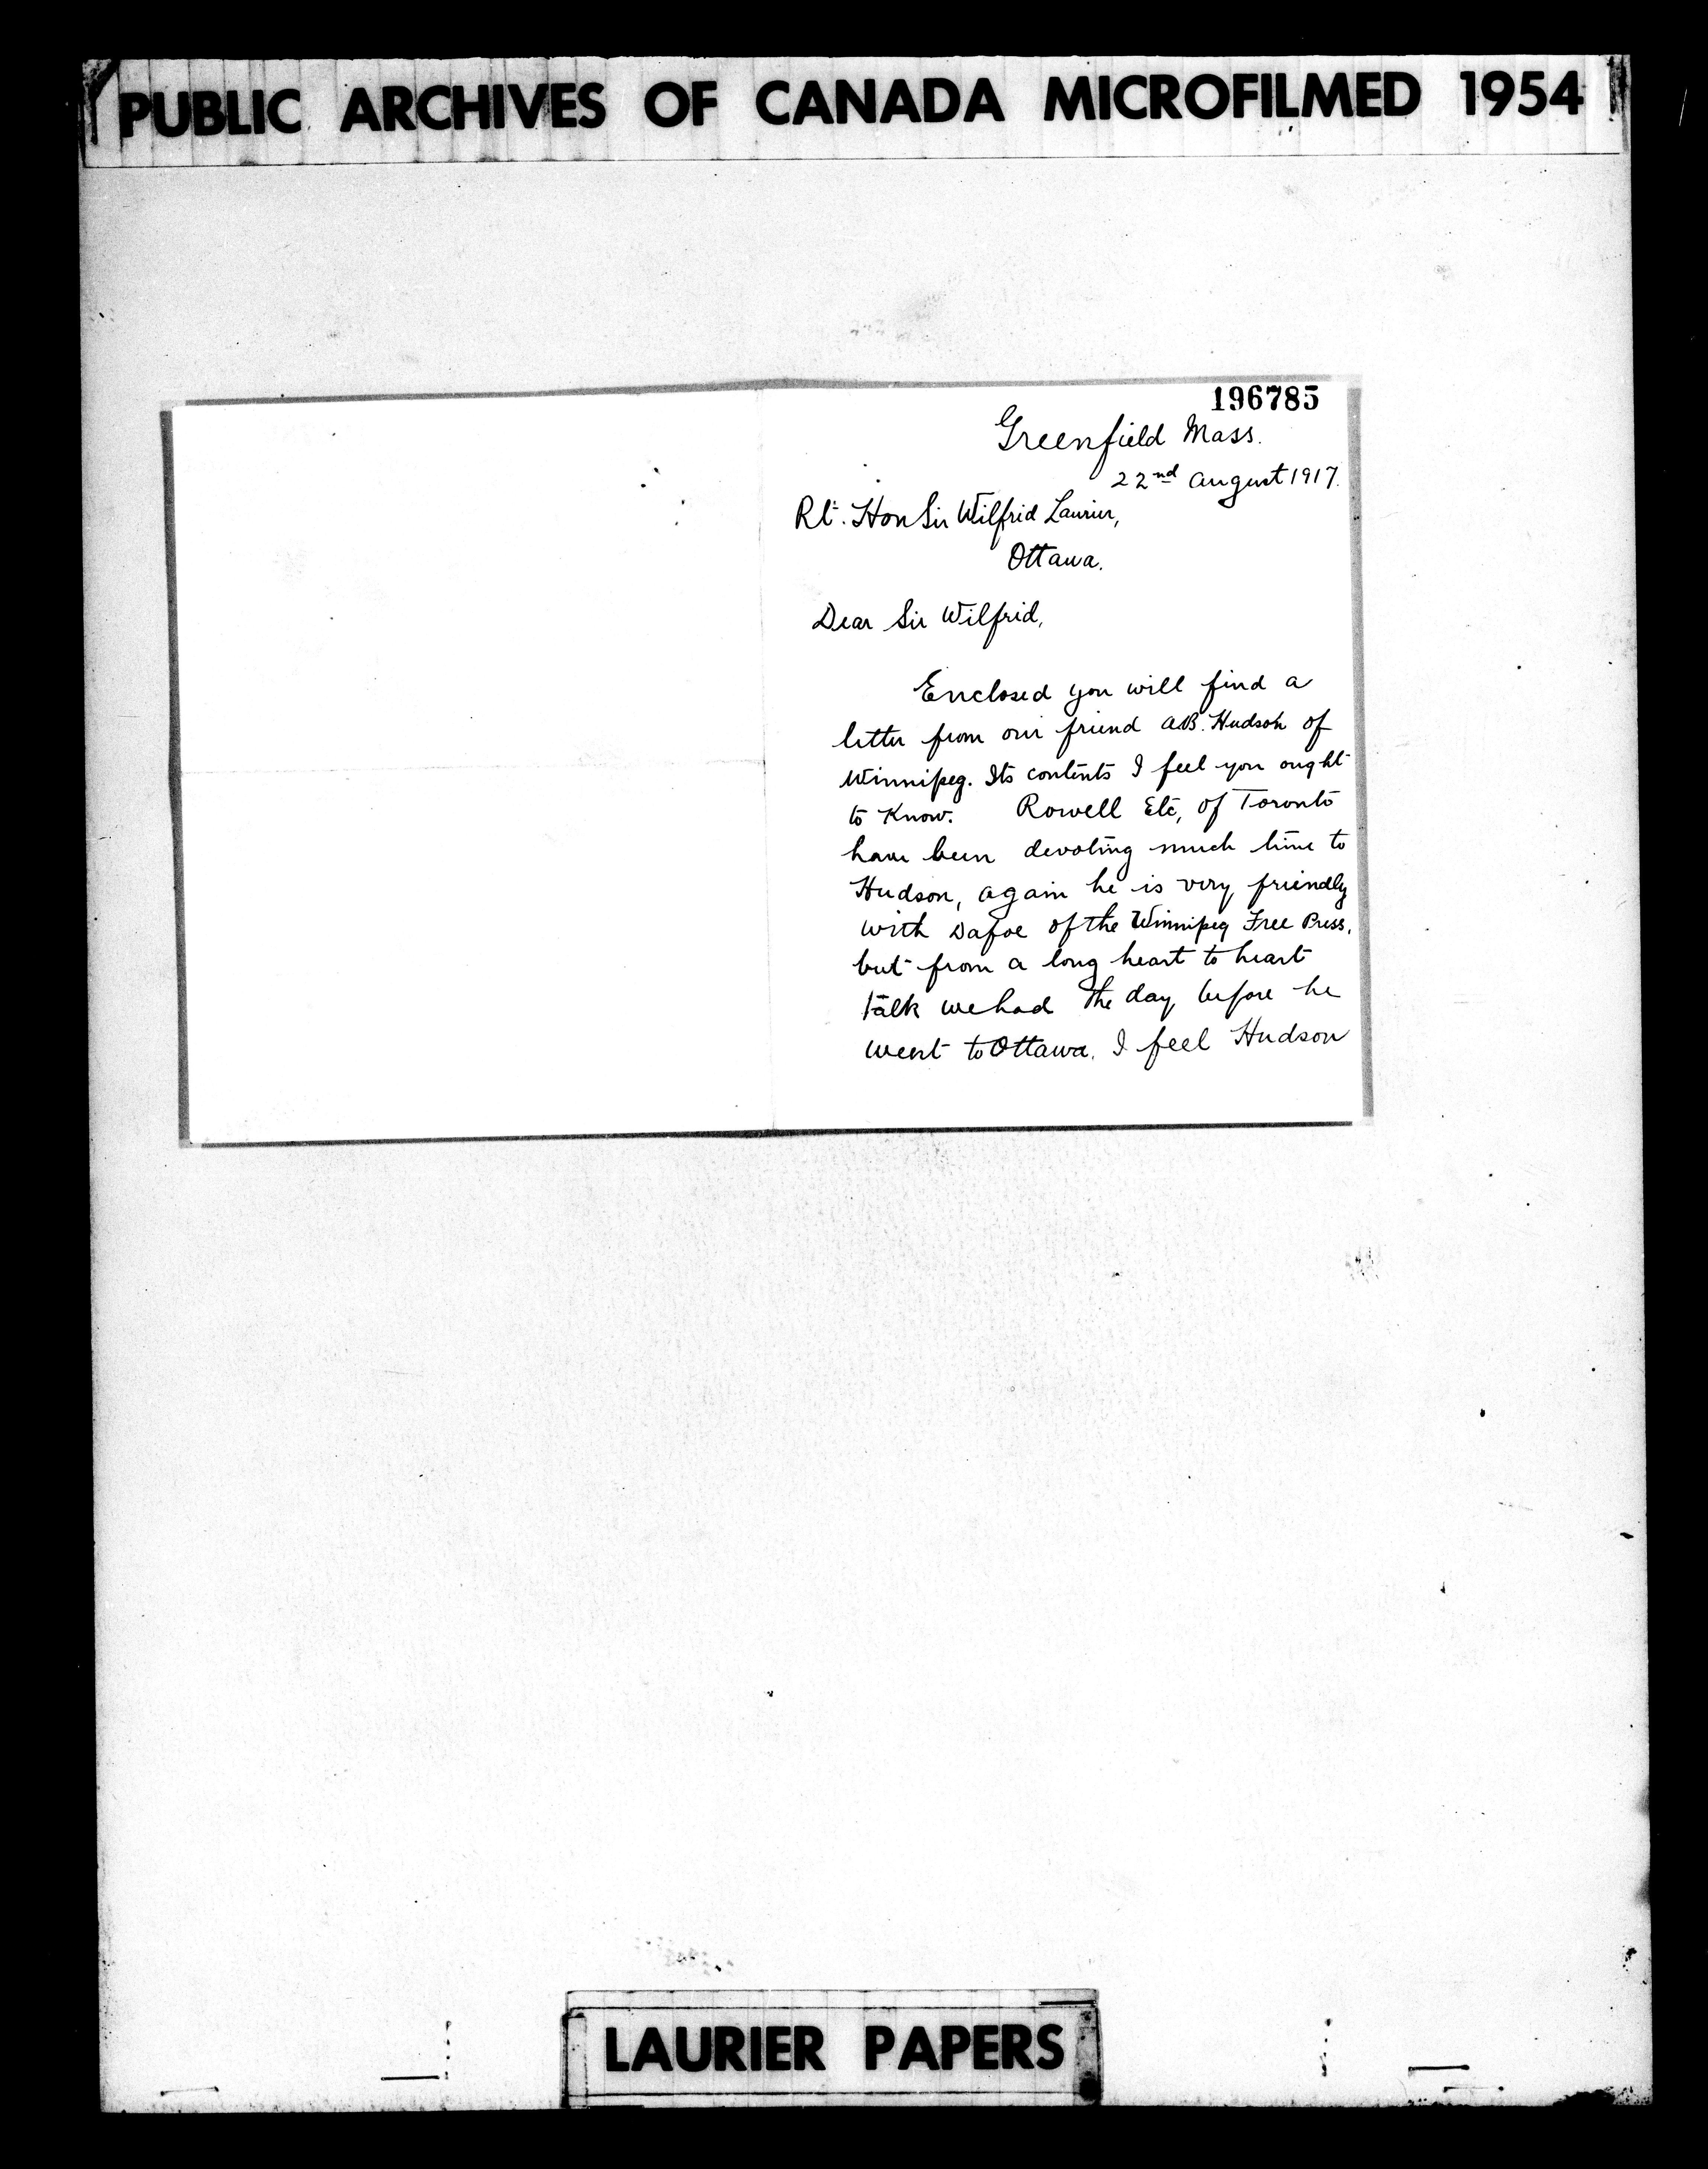 PUBLIC ARCHIVES OF CANADA MICROFILMED 1954
196785
Greenfield Mass.
22nd August 1917.
Rt. Hon Sir Wilfrid Laurier,
Ottawa.
Dear Sir Wilfrid,
Enclosed you will find a
letter from our friend A.B. Hudson of
Winnipeg. Its contents I feel you ought
to know. Rowell Etc, of Toronto
have been devoting much time to
Hudson, again he is very friendly
with Dafoe of the Winnipeg Free Press,
but from a long heart to heart
talk we had the day before he
went to Ottawa. I feel Hudson
LAURIER PAPERS